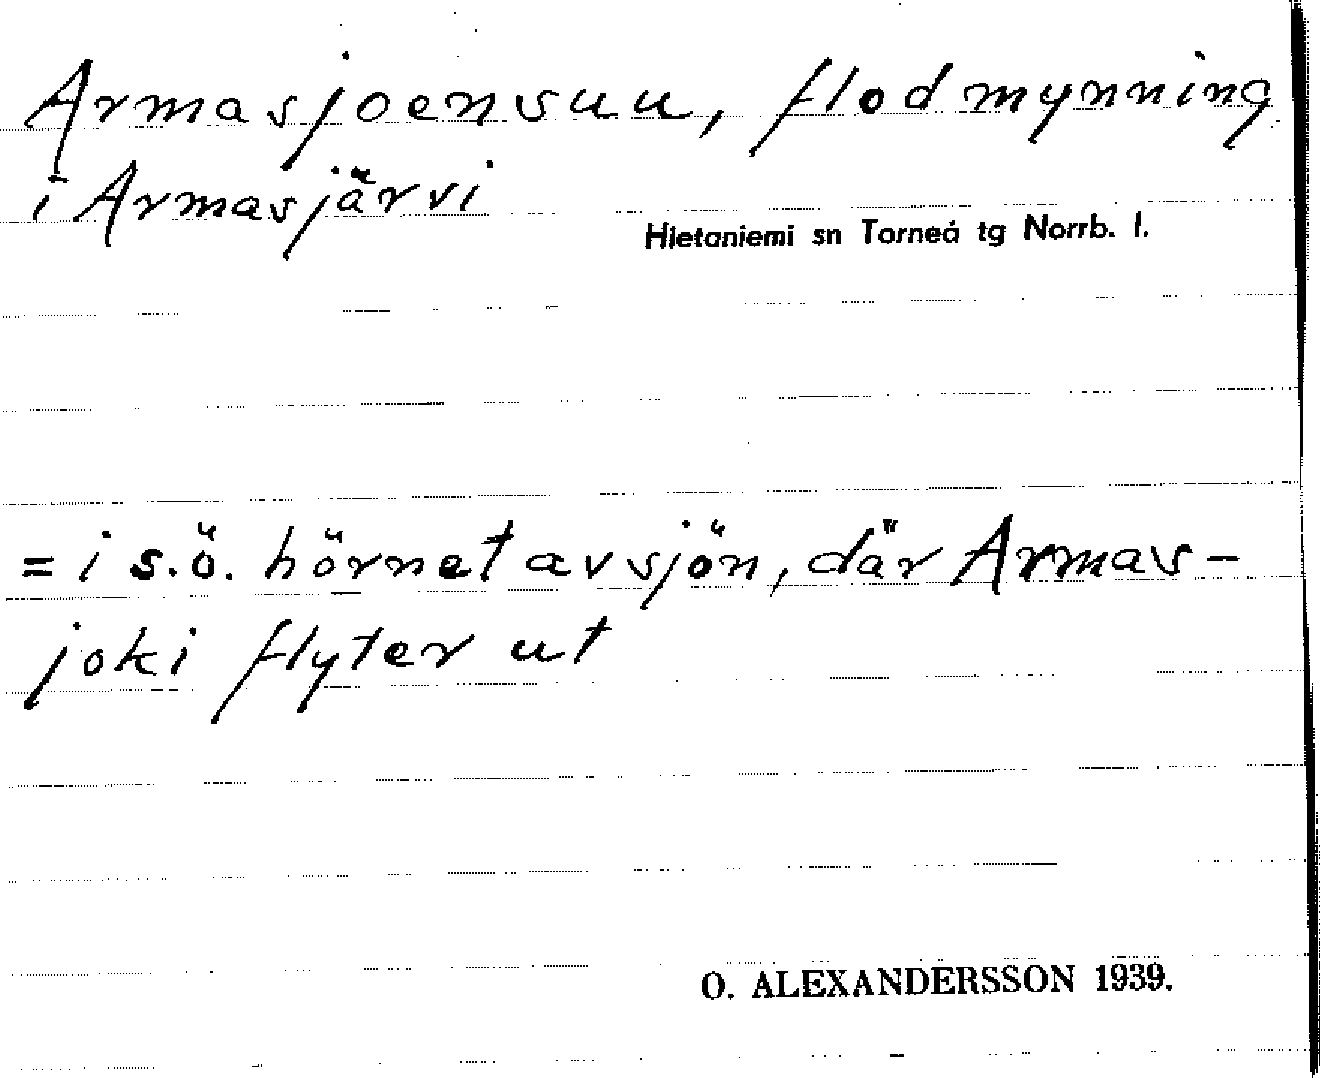 Armasjoensuu, flodmynning
i Armasjärvi
Hietaniemi sn Torneå tg Norrb. l.
= i s.ö. hörnet av sjön, där Armas-
joki flyter ut
O. ALEXANDERSSON 1939.